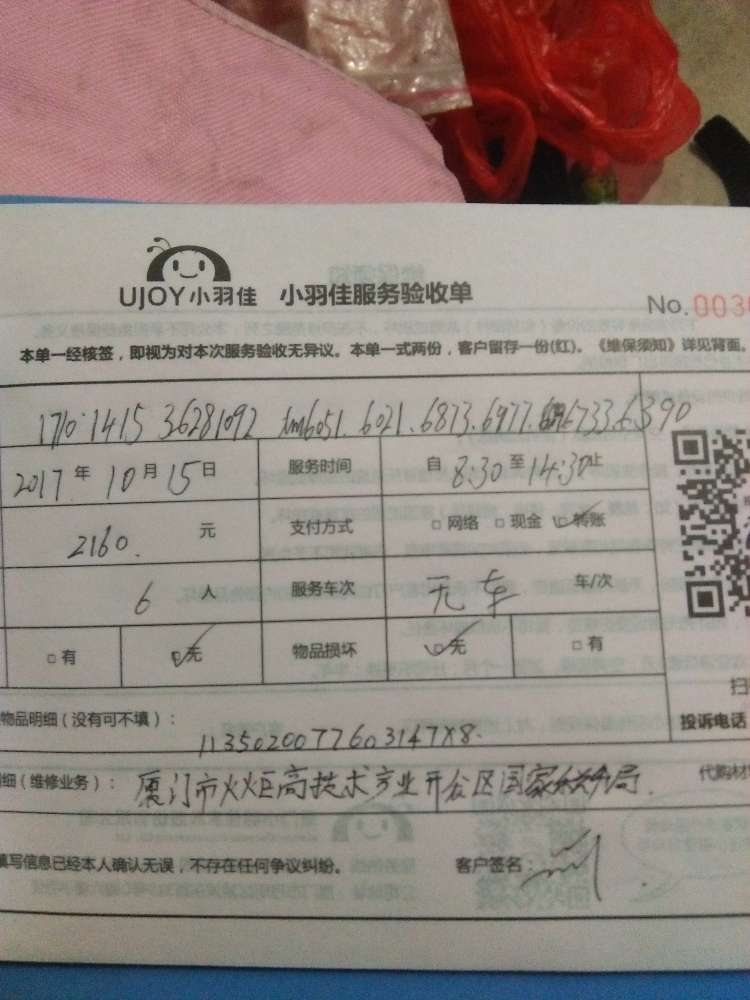 UJOY小羽佳 小羽佳服务验收单
No. 003
本单一经核签，即视为对本次服务验收无异议。本单一式两份，客户留存一份(红)。《维保须知》详见背面。
1710·1415 36281092 tm6051.6021.6873.6977.6733.6390
2017年10月15日 服务时间 自8:30至14:30止
2160. 元 支付方式 □网络 □现金 ☑转账
6 人 服务车次 无车 车/次
□有 ☑无 物品损坏 ☑无 □有
扫
物品明细（没有可不填）： 投诉电话
1135020077603147X8.
细（维修业务）：厦门市火炬高技术产业开发区国家税务局. 代购材
填写信息已经本人确认无误，不存在任何争议纠纷。 客户签名：